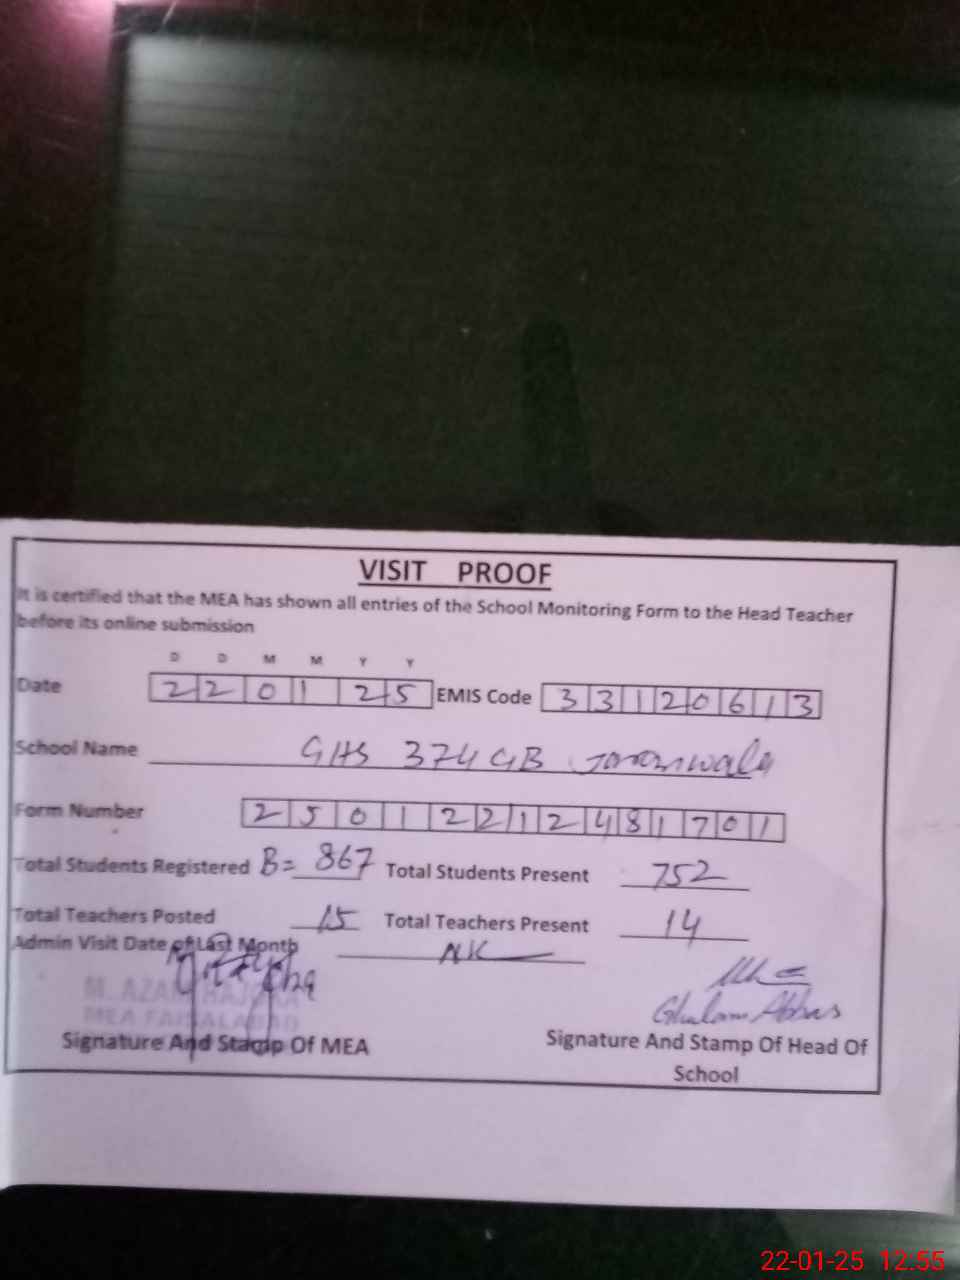 VISIT PROOF
It is certified that the MEA has shown all entries of the School Monitoring Form to the Head Teacher
before its online submission
D D M M Y Y
Date 220125 EMIS Code 33120613
School Name GHS 374 GB Jaranwala
Form Number 25012212481701
Total Students Registered B= 867 Total Students Present 752
Total Teachers Posted 15 Total Teachers Present 14
Admin Visit Date of Last Month NK
M. AZAM
MEA FAISALABAD
Ghulam Abbas
Signature And Stamp Of MEA
Signature And Stamp Of Head Of
School
22-01-25 12.55